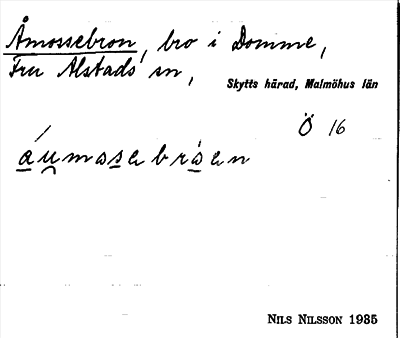 Åmossebron, bro i Domme,
Fru Alstads sn,
Skytts härad, Malmöhus län
Ö 16
áu̯mosebråen
NILS NILSSON 1935